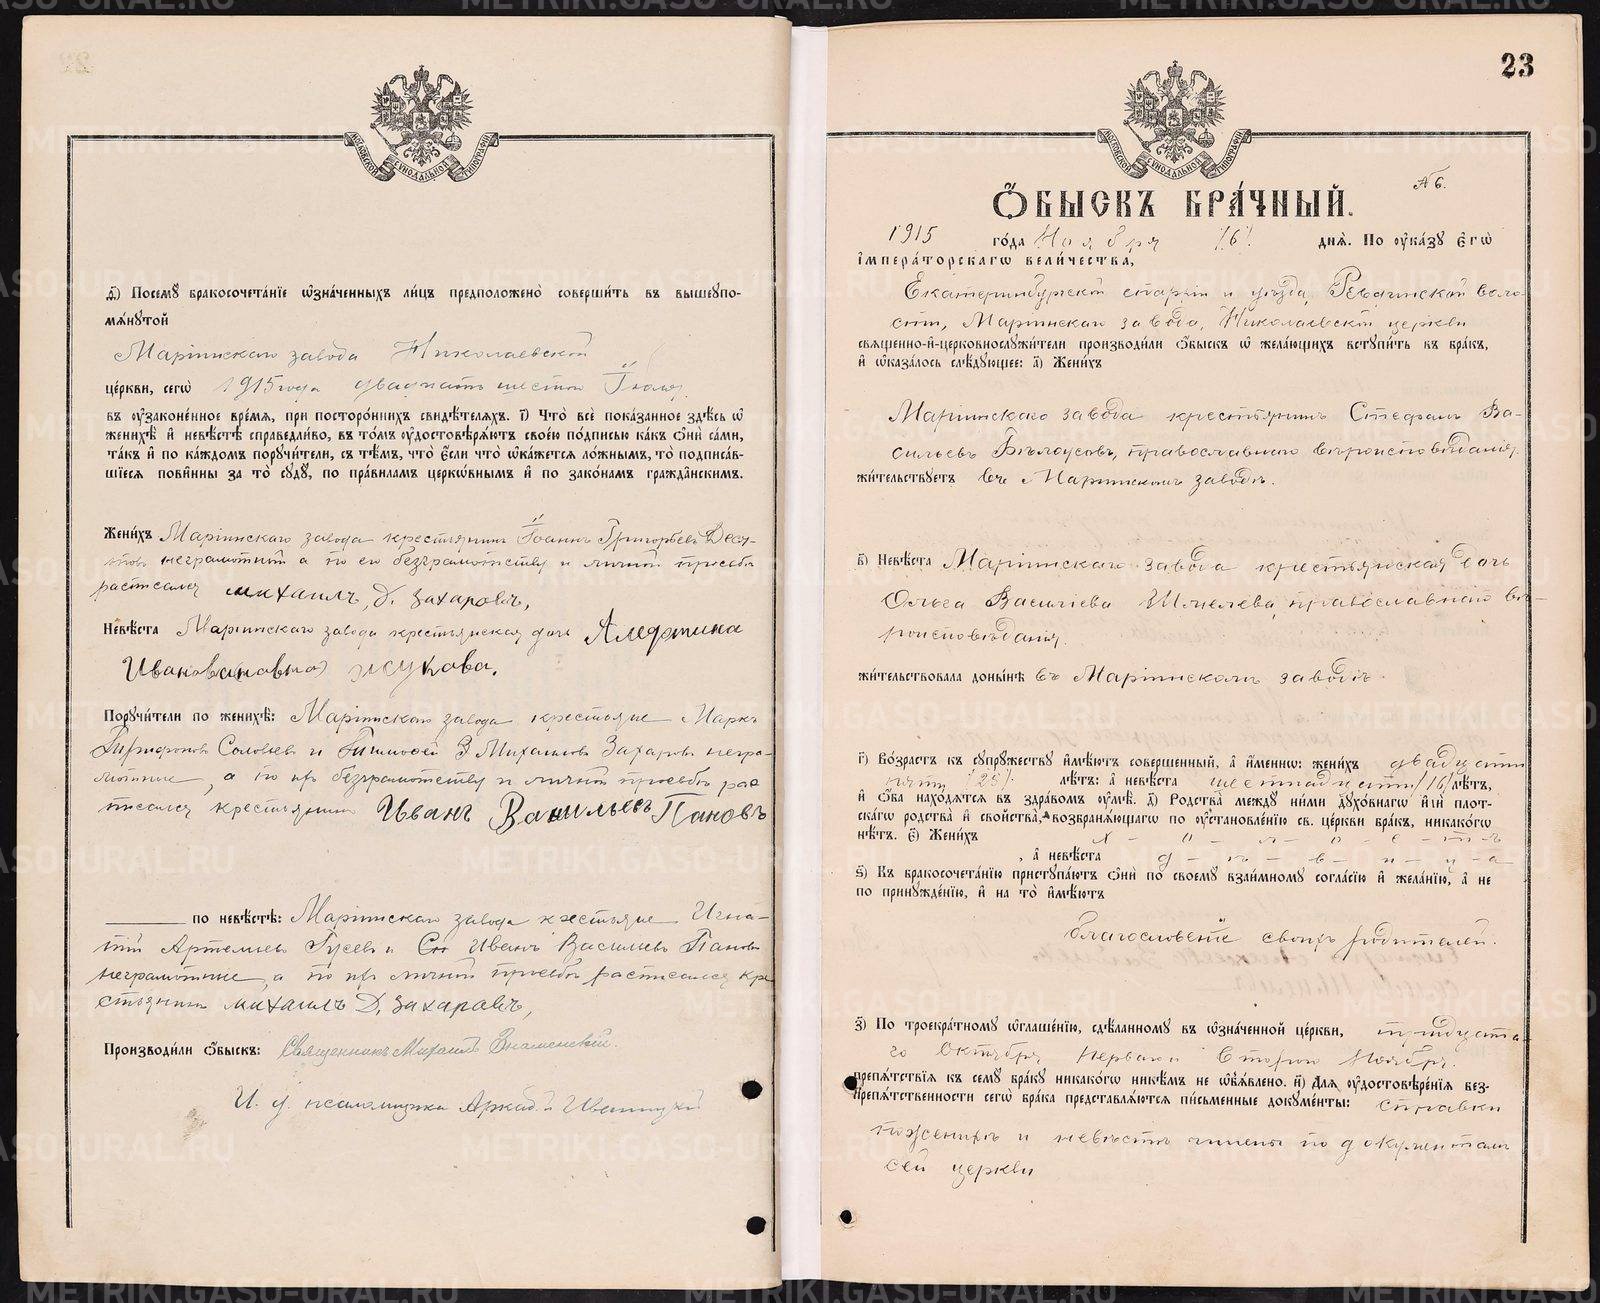 МОСКОВСКОЙ СѴНОДАЛЬНОЙ ТИПОГРАФІИ
д҃) Посемꙋ̀ бракосочета́нїе ѡ҆зна́ченныхъ ли́цъ предположено̀ соверши́ть въ вышеупо-
мѧ́нꙋтой
Маріинскаго завода Николаевской
це́ркви, сегѡ̀ 1915 года двадцать шестого Іюля
въ ᲂу҆зако́не́нное вре́мѧ, при посторо́ннихъ свидѣ́телѧхъ. і҃) Что̀ всѐ пока́занное здѣ́сь ѡ҆
женихѣ̀ и҆ невѣ́стѣ справедли́во, въ то́мъ ᲂу҆достовѣрѧ́ютъ свое́ю по́дписью ка́къ ѻ҆нѝ са́ми,
та́къ и҆ по ка́ждомъ порꙋчи́тели, съ тѣ́мъ, что̀ є҆́сли что̀ ѡ҆ка́жется ло́жнымъ, то̀ подписа́в-
шїесѧ пови́нны за то̀ сꙋдꙋ̀, по пра́виламъ церко́внымъ и҆ по зако́намъ гражда́нскимъ.
Жени́хъ Маріинскаго завода крестьянинъ Іоаннъ Григорьевъ Деся-
товъ неграмотный а по его безграмотству и личной просьбѣ
расписался михаилъ, Д. Захаровъ,
Невѣ́ста Маріинскаго завода крестьянская дочь Алефтина
Ивановановна Жукова.
Порꙋчи́тели по женихѣ̀: Маріинскаго завода крестьяне Маркъ
Трифоновъ Соловьевъ и Тимофей Михаиловъ Захаровъ негра-
мотные, а по ихъ безграмотству и личной просьбѣ рас
писался крестьянинъ Иванъ Васильевъ Пановъ
по невѣ́стѣ: Маріинскаго завода крестьяне Игна-
тій Артемьевъ Гусевъ и Иванъ Василіевъ Пановъ
неграмотные, а по ихъ личной просьбѣ расписался кре
стьянинъ михаилъ Д, Захаровъ,
Производи́ли ѻ҆́быскъ: Священникъ Михаилъ Знаменскій.
И. д. псаломщика Аркадій
23
МОСКОВСКОЙ СѴНОДАЛЬНОЙ ТИПОГРАФІИ
№ 6.
Ѻ҆БЫСКЪ БРА́ЧНЫЙ.
1915 го́да Ноября /6/. днѧ̀. По ᲂу҆ка́зꙋ є҆гѡ̀
і҆мпера́торскагѡ вели́чества,
Екатеринбургской епархіи и уѣзда, Ревдинской воло-
сти, Маріинскаго завода, Николаевской церкви
свѧще́нно-и҆-церковнослꙋжи́тели производи́ли ѻ҆́быскъ ѡ҆ жела́ющихъ встꙋпи́ть въ бра́къ,
и҆ ѡ҆каза́лось слѣ́дꙋющее: а҃) Жени́хъ
Маріинскаго завода крестьянинъ Стефанъ Ва-
сильевъ Бѣлоусовъ, православнаго вѣроисповѣданія,
жи́тельствꙋетъ въ Маріинскомъ заводѣ.
в҃) Невѣ́ста Маріинскаго завода крестьянская дочь
Ольга Василіева Шмелева, православнаго вѣ-
роисповѣданія.
жи́тельствовала доны́нѣ въ Маріинскомъ заводѣ.
г҃) Во́зрастъ къ сꙋпрꙋ́жествꙋ и҆мѣ́ютъ соверше́нный, а҆ и҆́меннѡ: жени́хъ двадцати
пяти /25/. лѣ́тъ: а҆ невѣ́ста шестнадцати /16/ лѣ́тъ,
и҆ ѻ҆́ба нахо́дѧтсѧ въ здра́вомъ ᲂу҆мѣ̀. д҃) Родства̀ междꙋ ни́ми дꙋхо́внагѡ и҆лѝ плот-
ска́гѡ родства̀ и҆ сво́йства, возбранѧ́ющагѡ по ᲂу҆становле́нїю св. це́ркви бра́къ, никако́гѡ
нѣ́тъ. є҃) Жени́хъ х – о – л – о – с – т – ъ
, а҆ невѣ́ста д – ѣ – в – и – ц – а –
ѕ҃) Къ бракосочета́нїю пристꙋпа́ютъ ѻ҆нѝ по своемꙋ̀ взаи́мномꙋ согла́сїю и҆ жела́нїю, а҆ не
по принꙋжде́нїю, и҆ на то̀ и҆мѣ́ютъ
благословеніе своихъ родителей.
з҃) По троекра́тномꙋ ѡ҆глаше́нїю, сдѣ́ланномꙋ въ ѡ҆зна́ченной це́ркви, тридцата-
го Октября перваго второго Ноября
препѧ́тствїѧ къ семꙋ̀ бра́кꙋ никако́гѡ никѣ́мъ не ѡ҆бъѧ́влено. и҃) Длѧ̀ ᲂу҆достовѣре́нїѧ без-
препѧ́тственности сегѡ̀ бра́ка представлѧ́ютсѧ пи́сьменные докꙋме́нты: справки
о женихѣ и невѣстѣ чинены по документамъ
сей церкви
METRIKI.GASO-URAL.RU